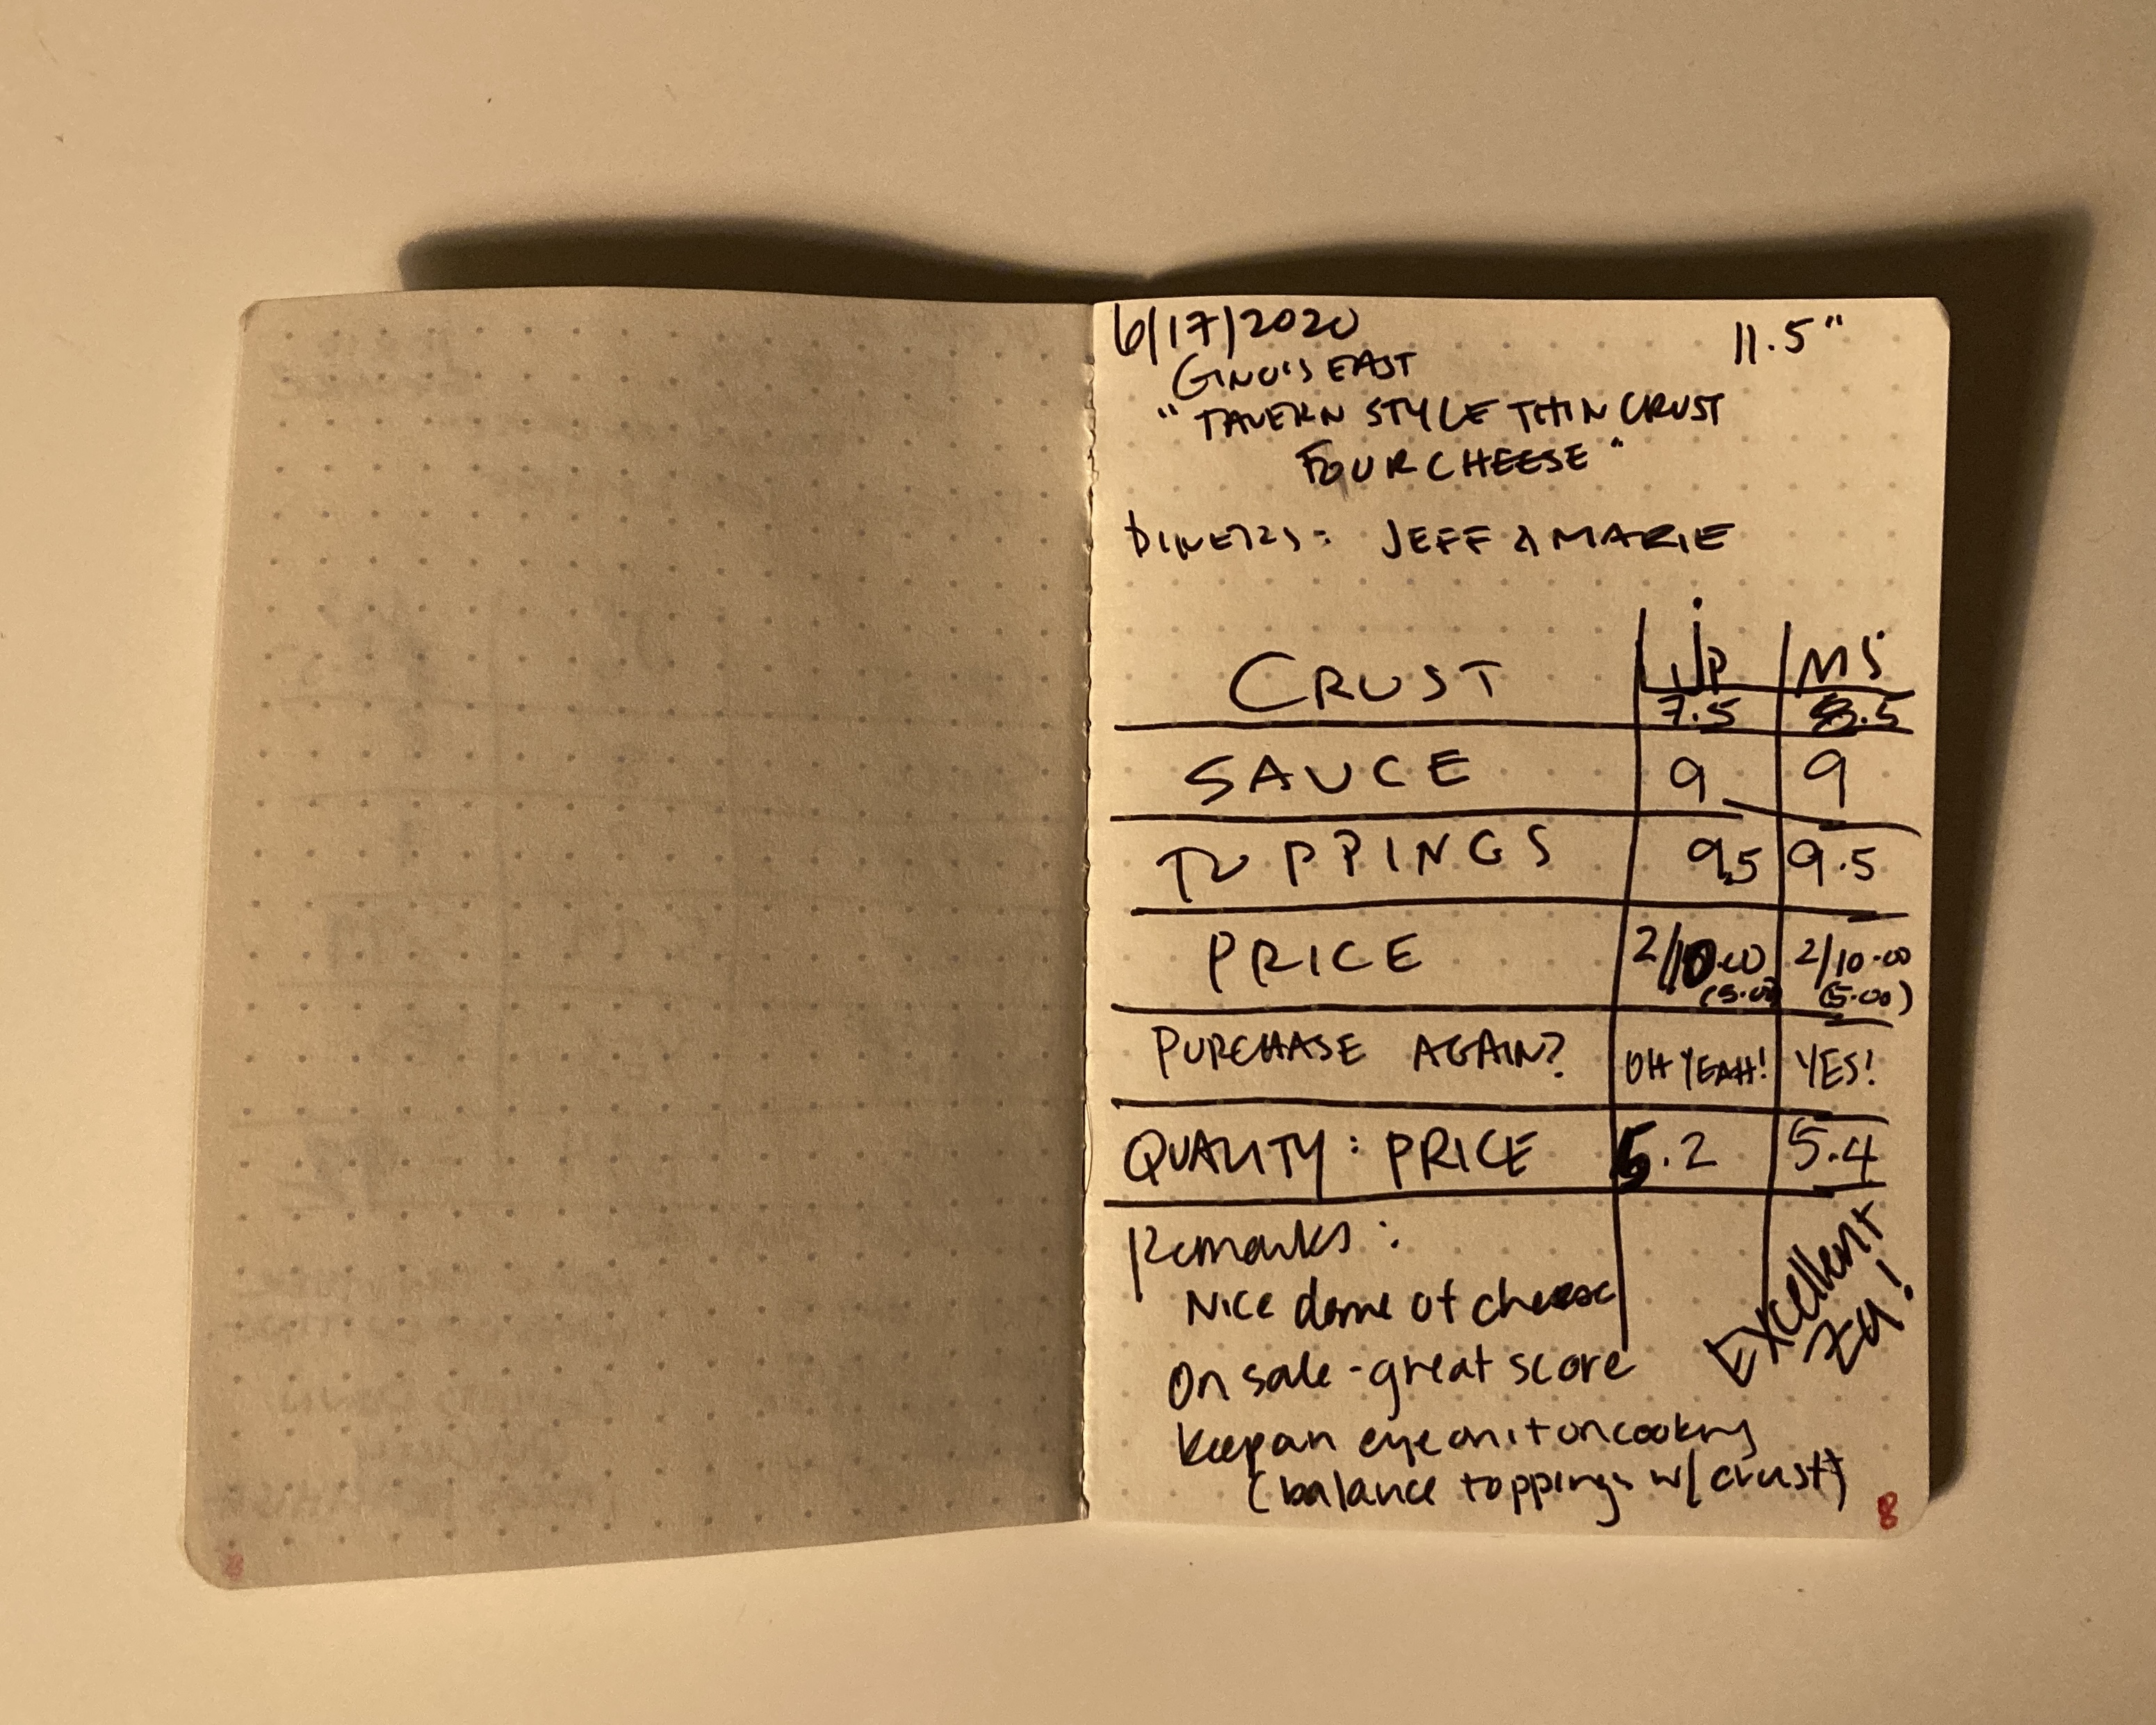 6/17/2020 11.5"
GINO'S EAST
"TAVERN STYLE THIN CRUST
FOUR CHEESE"
DINERS: JEFF & MARIE
CRUST JP MS
7.5 8.5
SAUCE 9 9
TOPPINGS 9.5 9.5
PRICE 2/10.00 2/10.00
(5.00) (5.00)
PURCHASE AGAIN? OH YEAH! YES!
QUALITY: PRICE 5.2 5.4
Remarks:
Nice dome of cheese
On sale - great score
Excellent
ZA!
Keep an eye on it on cooking
(balance toppings w/ crust)
8